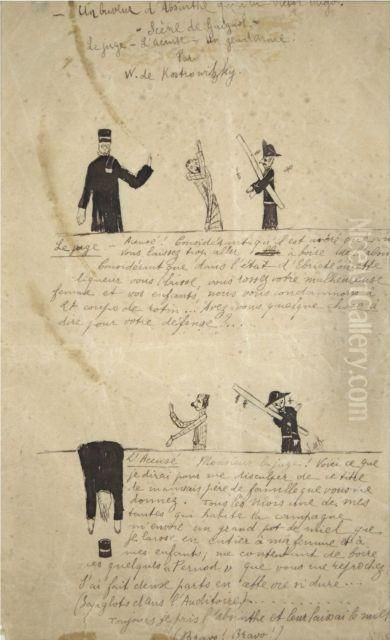 - Un buveur d'Absinthe qui a lu Victor Hugo.
- Scène de Guignol -
Le juge - L'accusé - Un gendarme.
Par
W. de Kostrowitzky.
Le juge - Accusé! Considérant qu'il est avéré que
vous laissez trop aller à boire
Considérant que dans l'état d'Ebriété où cette
liqueur vous laisse, vous rossez votre malheureuse
femme et vos enfants, nous vous condamnons à
coups de rotin... Avez-vous quelque chose à
dire pour votre défense?...
L'Accusé Monsieur le juge! Voici ce que
je dirai pour me disculper de ce titre
de mauvais père de famille que vous me
donnez. Tous les mois une de mes
tantes qui habite la campagne
m'envoie un grand pot de miel que
je laisse en entier à ma femme et à
mes enfants; me contentant de boire
ces quelques "Pernod" que vous me reprochez
J'ai fait deux parts en cette vie si dure...
(Sanglots dans l'Auditoire)
Toujours je pris l'absinthe et leur laissai le miel
(Bravo! Bravo!)
alamy - MasterArtGallery.com